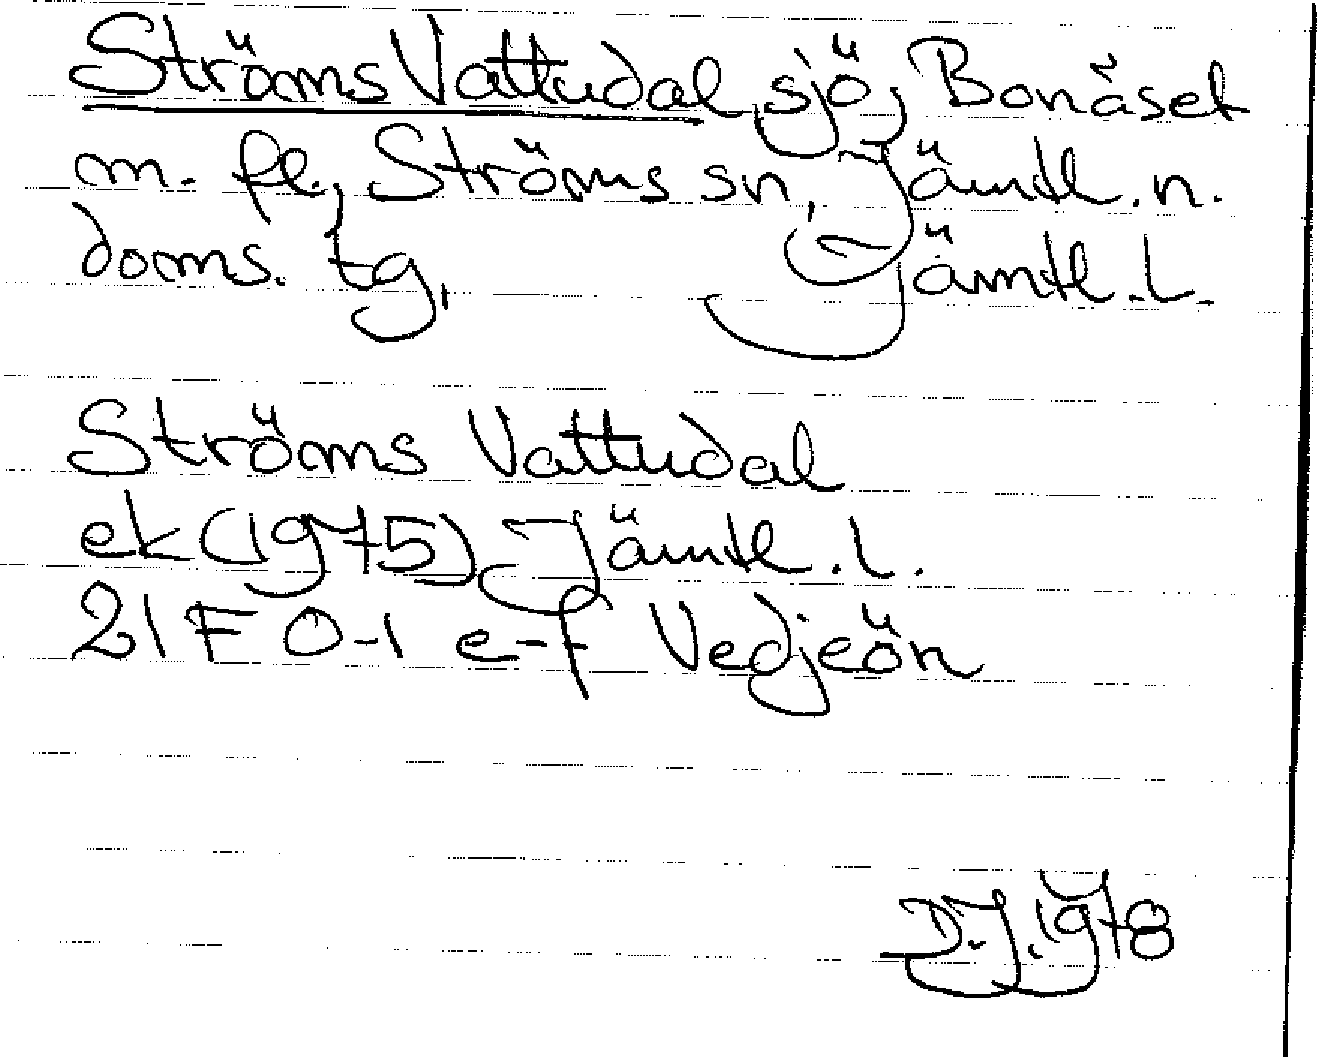 Ströms Vattudal, sjö, Bonäset
m. fl., Ströms sn, Jämtl. n.
doms. tg, Jämtl. l.
Ströms Vattudal
ek (1975) Jämtl. l.
21F 0-1 e-f Vedjeön
D.J. 1978